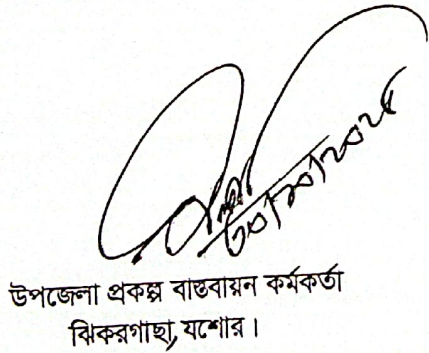 উপজেলা প্রকল্প বাস্তবায়ন কর্মকর্তা
ঝিকরগাছা, যশোর।